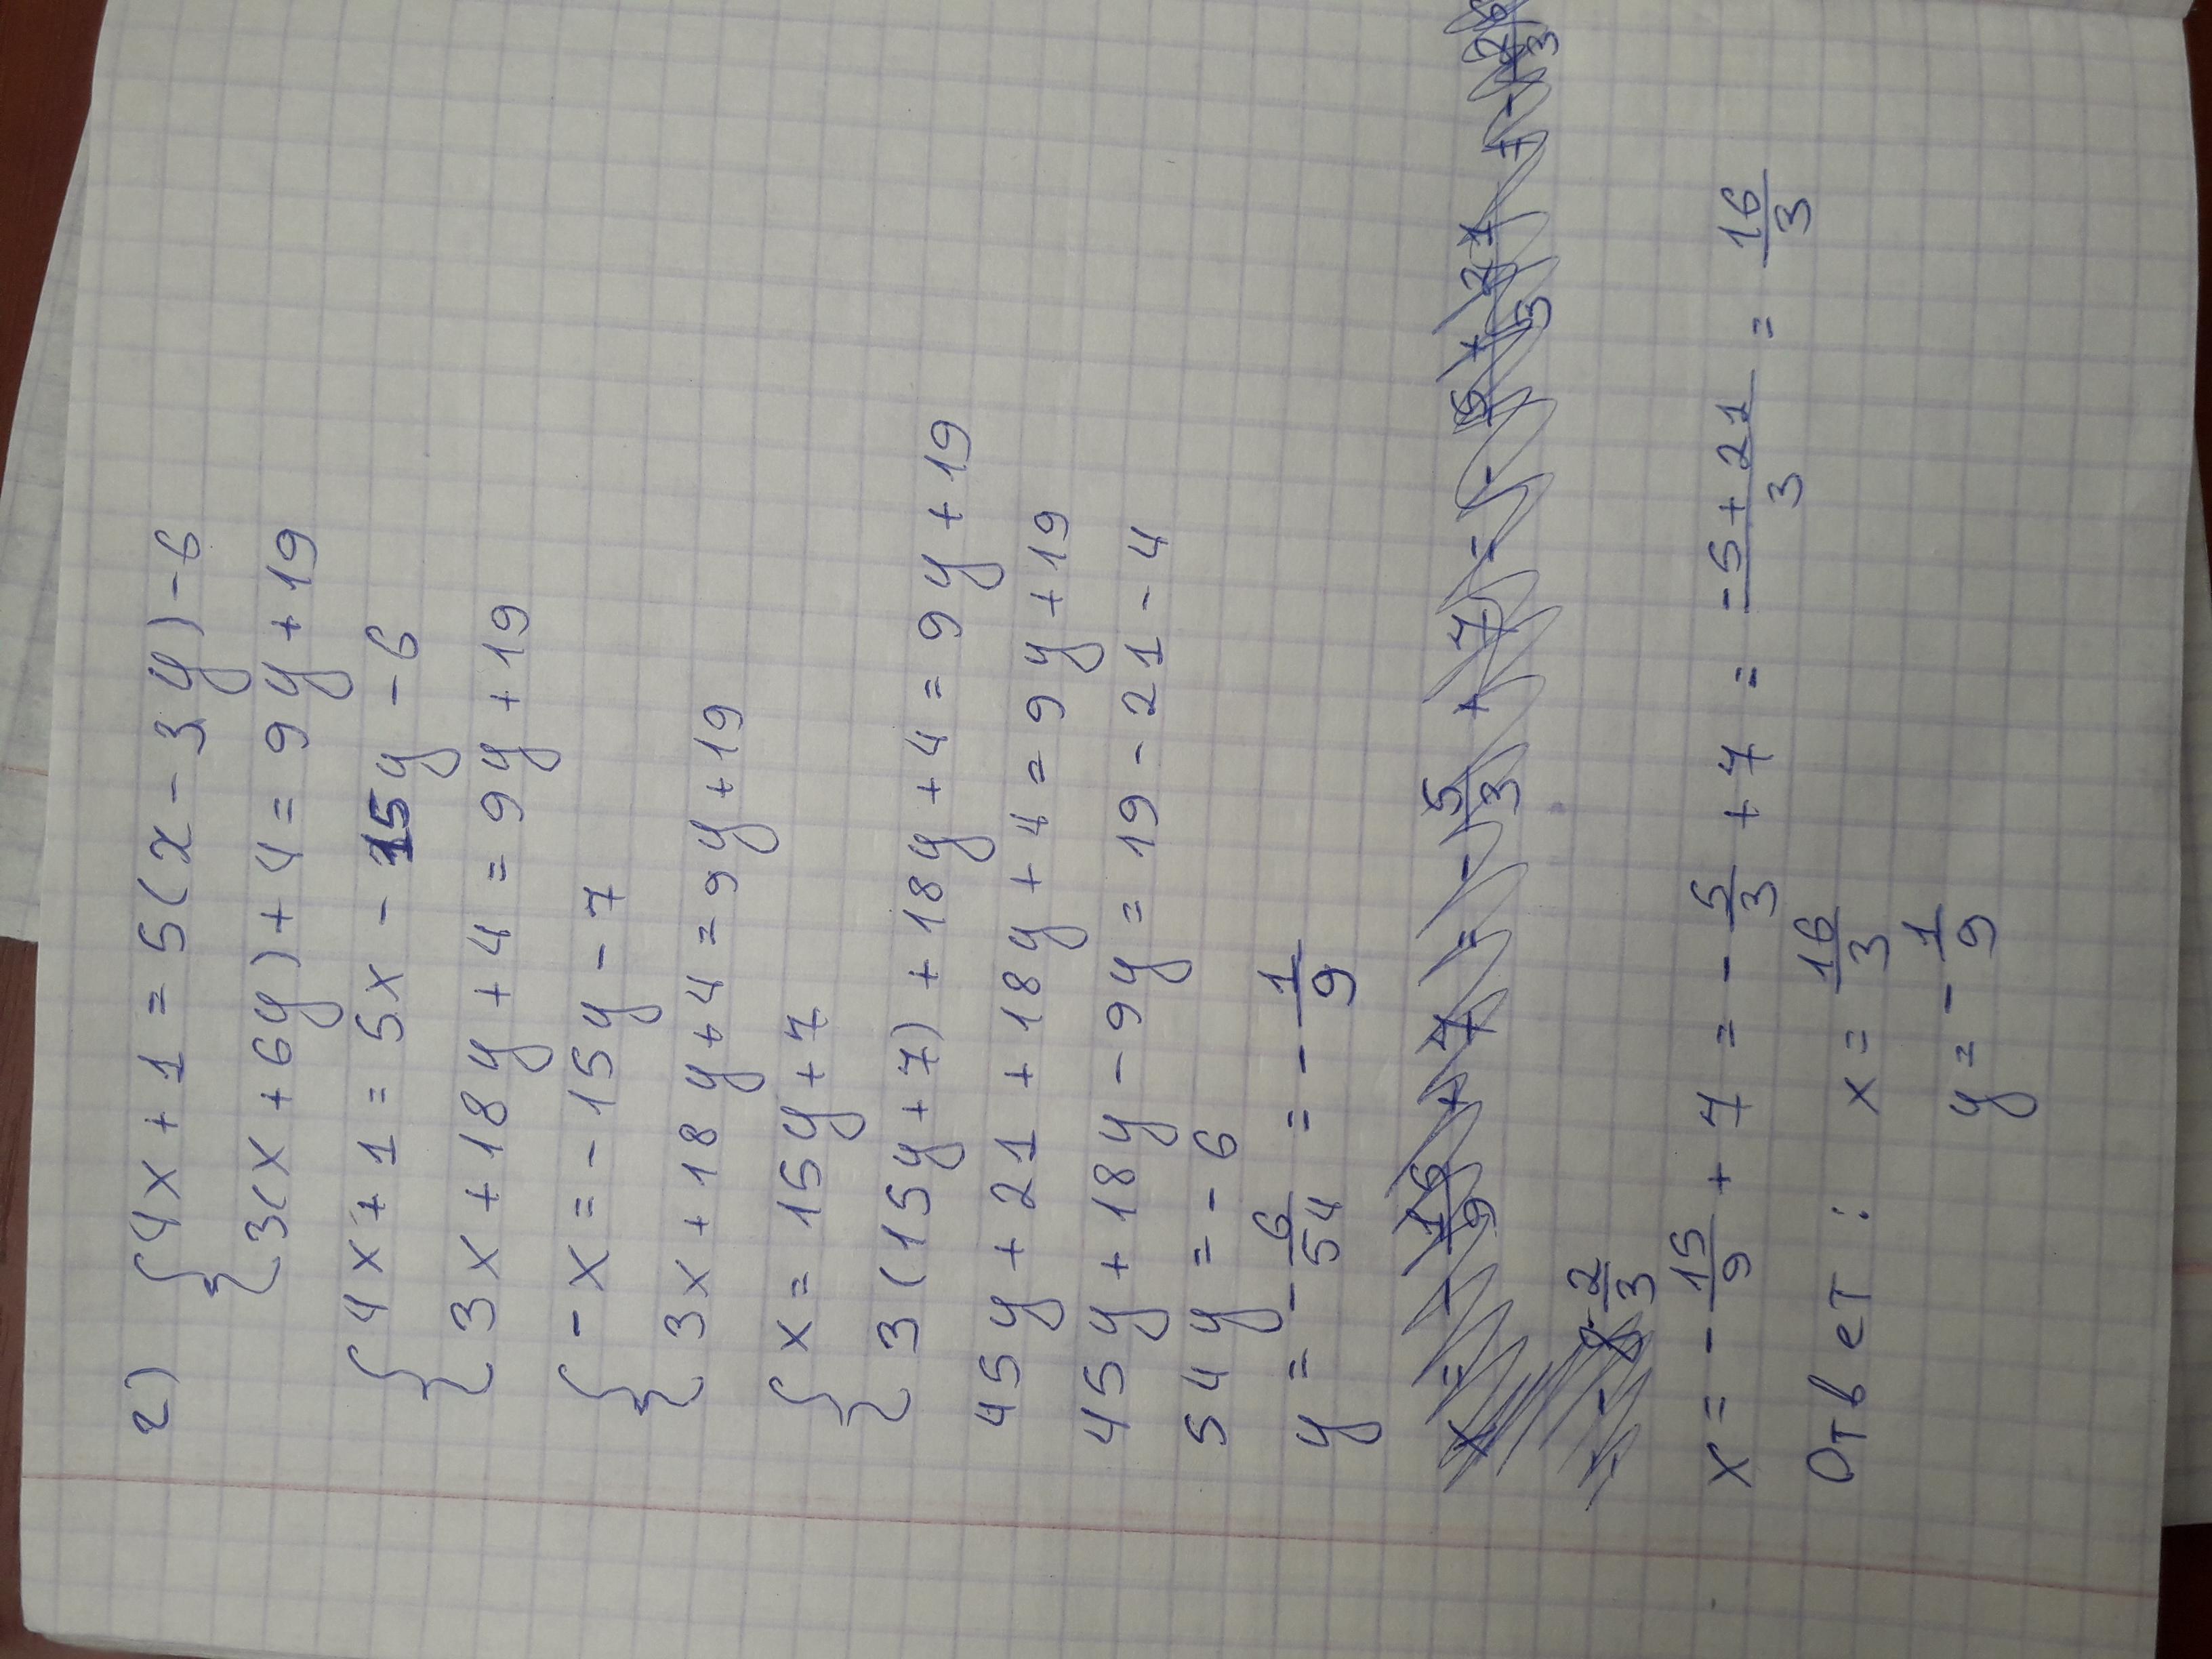 2) {4x + 1 = 5(x - 3y) - 6
{3(x + 6y) + 4 = 9y + 19
{4x + 1 = 5x - 15y - 6
{3x + 18y + 4 = 9y + 19
{-x = -15y - 7
{3x + 18y + 4 = 9y + 19
{x = 15y + 7
{3(15y + 7) + 18y + 4 = 9y + 19
45y + 21 + 18y + 4 = 9y + 19
45y + 18y - 9y = 19 - 21 - 4
54y = -6
y = -6/54 = -1/9
x = -15/9 + 7 = -5/3 + 7 = -5+21/3 = 16/3
Ответ: x = 16/3
y = -1/9